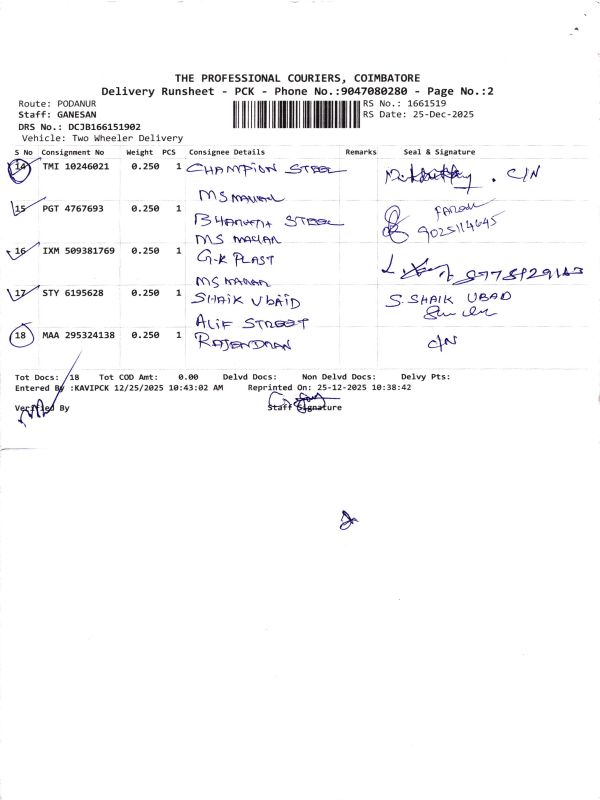 THE PROFESSIONAL COURIERS, COIMBATORE
Delivery Runsheet - PCK - Phone No.:9047080280 - Page No.:2
Route: PODANUR RS No.: 1661519
Staff: GANESAN RS Date: 25-Dec-2025
DRS No.: DCJB166151902
Vehicle: Two Wheeler Delivery
S No Consignment No Weight PCS Consignee Details Remarks Seal & Signature
14 TMI 10246021 0.250 1 CHAMPION STEEL C/N
MS
15 PGT 4767693 0.250 1 STEEL
9025114645
MS
16 IXM 509381769 0.250 1 G.K PLAST
MS
17 STY 6195628 0.250 1 SHAIK UBAID S. SHAIK UBAD
ALIF STREET
18 MAA 295324138 0.250 1 RAJENDRAN C/N
Tot Docs: 18 Tot COD Amt: 0.00 Delvd Docs: Non Delvd Docs: Delvy Pts:
Entered By :KAVIPCK 12/25/2025 10:43:02 AM Reprinted On: 25-12-2025 10:38:42
Verified By Staff Signature